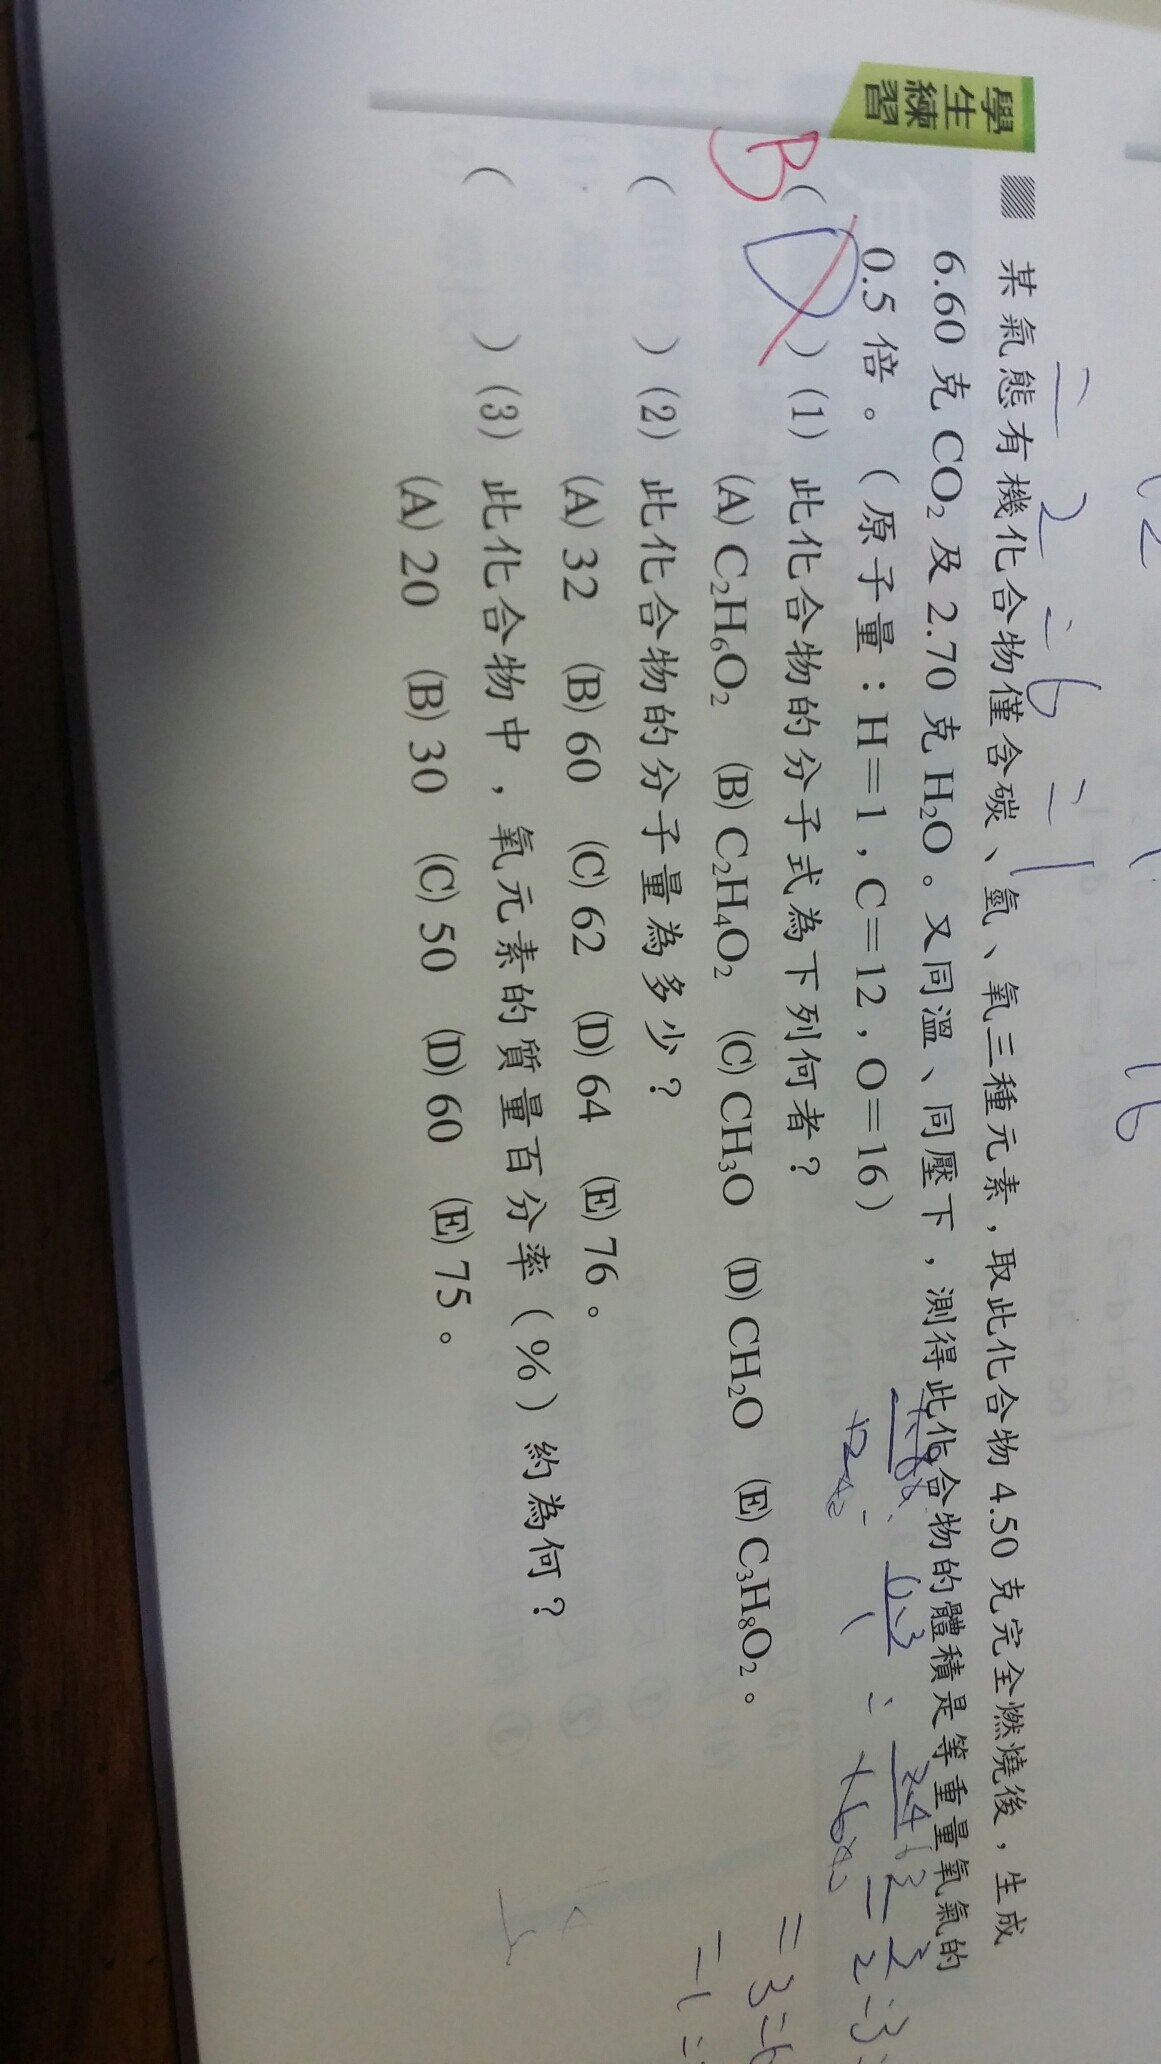 學生練習
某氣態有機化合物僅含碳、氫、氧三種元素，取此化合物 4.50 克完全燃燒後，生成
6.60 克 CO₂ 及 2.70 克 H₂O。又同溫、同壓下，測得此化合物的體積是等重量氧氣的
0.5 倍。（原子量：H＝1，C＝12，O＝16）
B( D )(1) 此化合物的分子式為下列何者？
(A) C₂H₆O₂ (B) C₂H₄O₂ (C) CH₃O (D) CH₂O (E) C₃H₈O₂。
( )(2) 此化合物的分子量為多少？
(A) 32 (B) 60 (C) 62 (D) 64 (E) 76。
( )(3) 此化合物中，氧元素的質量百分率（%）約為何？
(A) 20 (B) 30 (C) 50 (D) 60 (E) 75。